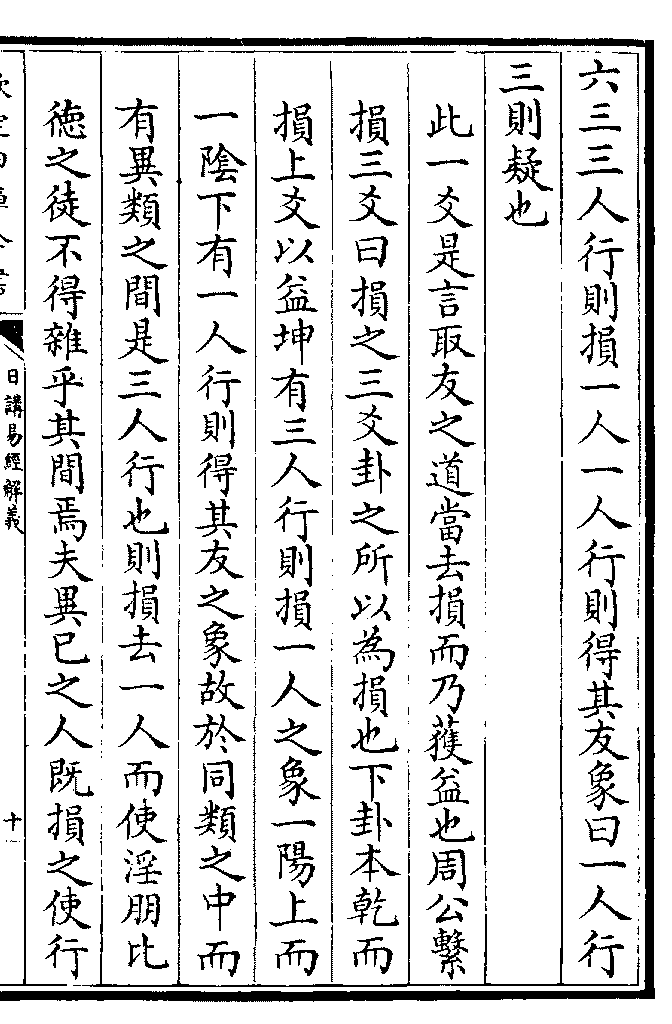 六三三人行則損一人一人行則得其友象曰一人行
三則疑也
此一爻是言取友之道當去損而乃獲益也周公繫
損三爻曰損之三爻卦之所以為損也下卦本乾而
損上爻以益坤有三人行則損一人之象一陽上而
一陰下有一人行則得其友之象故於同類之中而
有異類之間是三人行也則損去一人而使淫朋比
德之徒不得雜乎其間焉夫異己之人既損之使行
日講易經解義
十